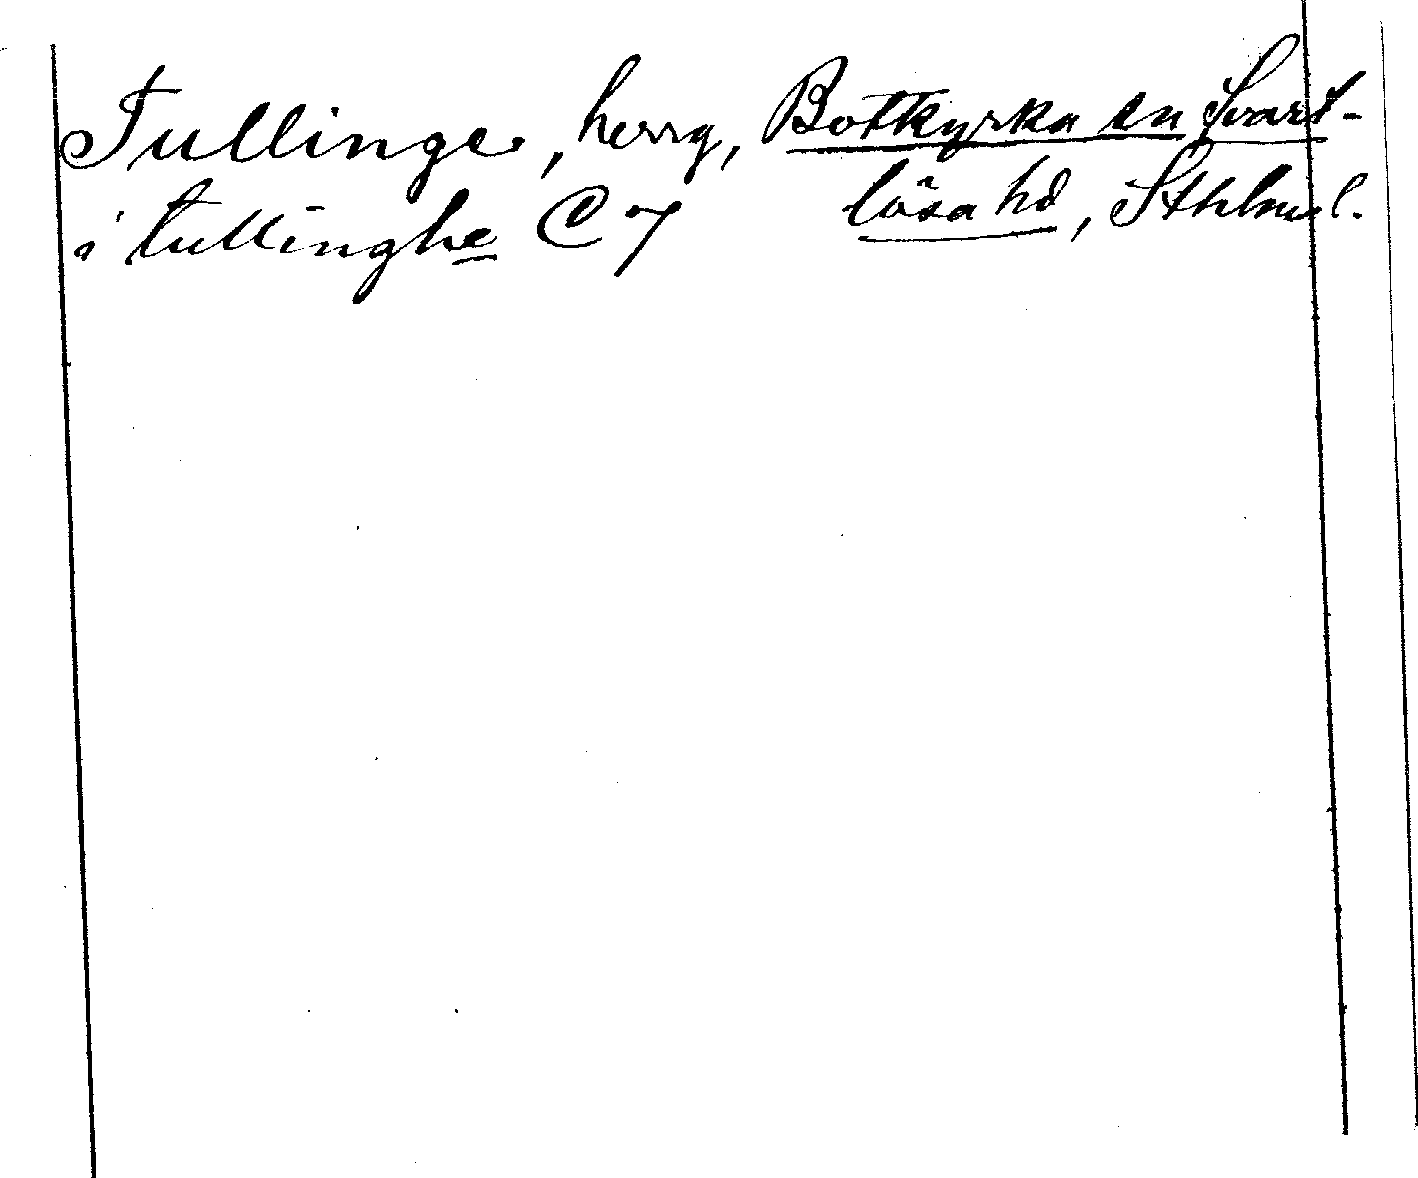 Tullinge, herrg, Botkyrka sn Svart-
i tullinghe C 7 lösa hd, Sthlms l.